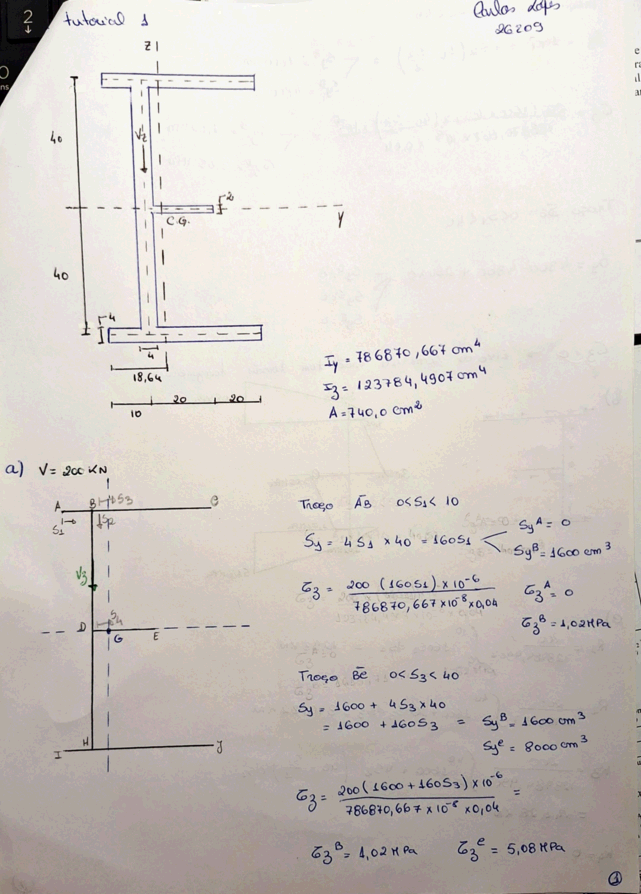 2
tutorial 1
Carlos Lopes
26209
z
40
Vz
2
C.G.
y
40
4
4
18,64
20
20
10
Iy = 786870,667 cm⁴
Iz = 123784,4907 cm⁴
A = 740,0 cm²
a) V = 200 KN
A B S3 C
S1 S2
Vz
D S4 E
G
H
I J
Troço AB 0<S1<10
Sy = 4S1 × 40 = 160S1
SyA = 0
SyB = 1600 cm³
τz = 200 (160S1) × 10⁻⁶ / 786870,667 × 10⁻⁸ × 0,04
τzA = 0
τzB = 1,02 MPa
Troço BC 0<S3<40
Sy = 1600 + 4S3 × 40
= 1600 + 160S3 = SyB = 1600 cm³
Syc = 8000 cm³
τz = 200 (1600 + 160S3) × 10⁻⁶ / 786870,667 × 10⁻⁸ × 0,04 =
τzB = 1,02 MPa τzc = 5,08 MPa
1